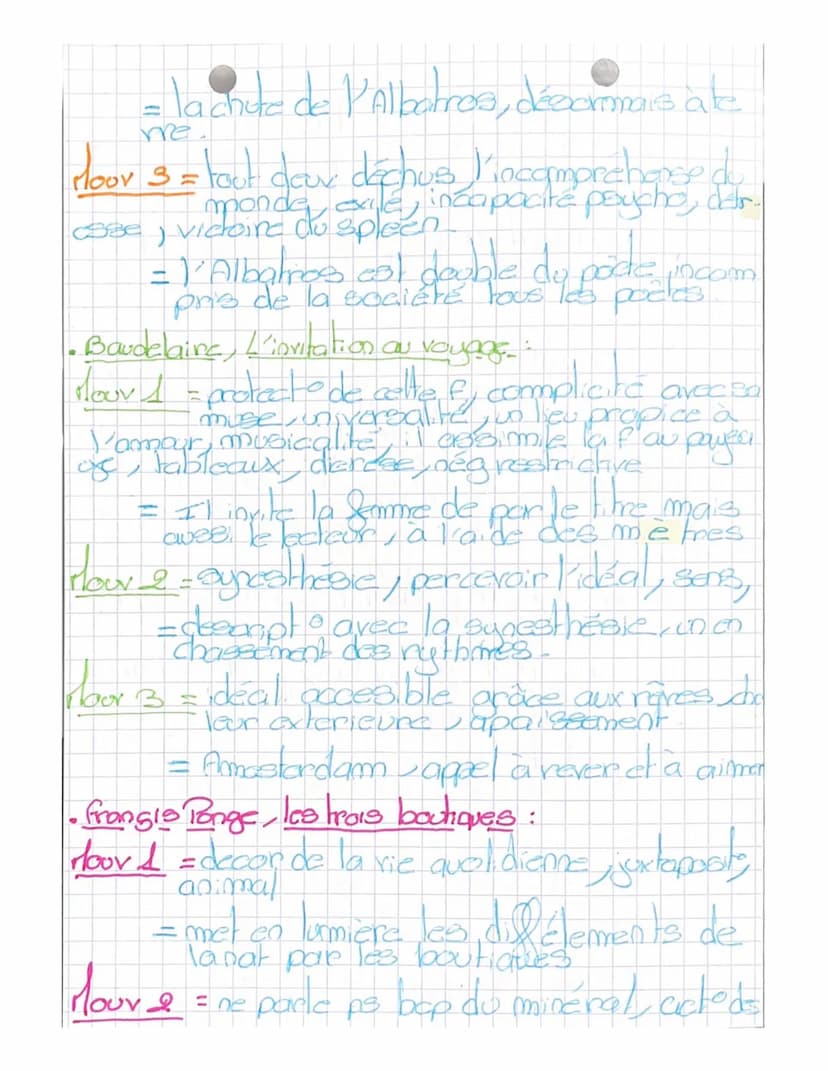 = la chute de l'Albatros, désormais à te
rre.
Mouv 3 = tout deux déchus, l'incompréhense du
monde, exilé, incapacité psycho, détr-
esse, victoire du spleen
= l'Albatros est double du poète, incom
pris de la société tous les poètes
• Baudelaire, L'invitation au voyage :
Mouv 1 = protect° de cette f, complicité avec sa
muse, universalité, un lieu propice à
l'amour, musicalité, il assimile la f au paysa
ge, tableaux, diérèse, nég restrictive
= Il invite la femme de par le titre mais
aussi le lecteur, à l'aide des mètres
Mouv 2 = synesthésie, percevoir l'idéal, sens,
= descript° avec la synesthésie, un en
chassement des rythmes.
Mouv 3 = idéal accesible grâce aux rêves, cha
leur exterieure, apaisement
= Amasterdam, appel à rever et à aimer
• Françis Ponge, les trois boutiques :
Mouv 1 = decor de la vie quotidienne, juxtaposit°,
animal
= met en lumière les diff élements de
la nat par les boutiques
Mouv 2 = ne parle ps bcp du minéral, act° ds